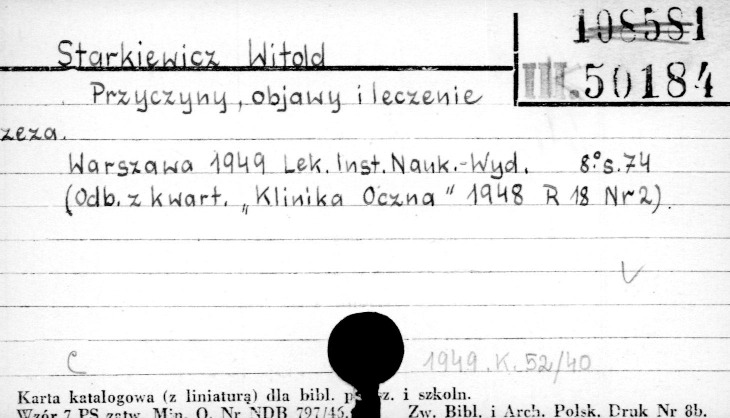 108581
Starkiewicz Witold
III.50184
Przyczyny, objawy i leczenie
zeza.
Warszawa 1949 Lek. Inst. Nauk.-Wyd. 8° s. 74
(Odb. z kwart. „Klinika Oczna" 1948 R 18 Nr 2).
C 1949. K. 52/40
Karta katalogowa (z liniaturą) dla bibl. z. i szkoln.
Wzór 7 PS zatw. Min. O. Nr NDB 797/45. Zw. Bibl. i Arch. Polsk. Druk Nr 8b.